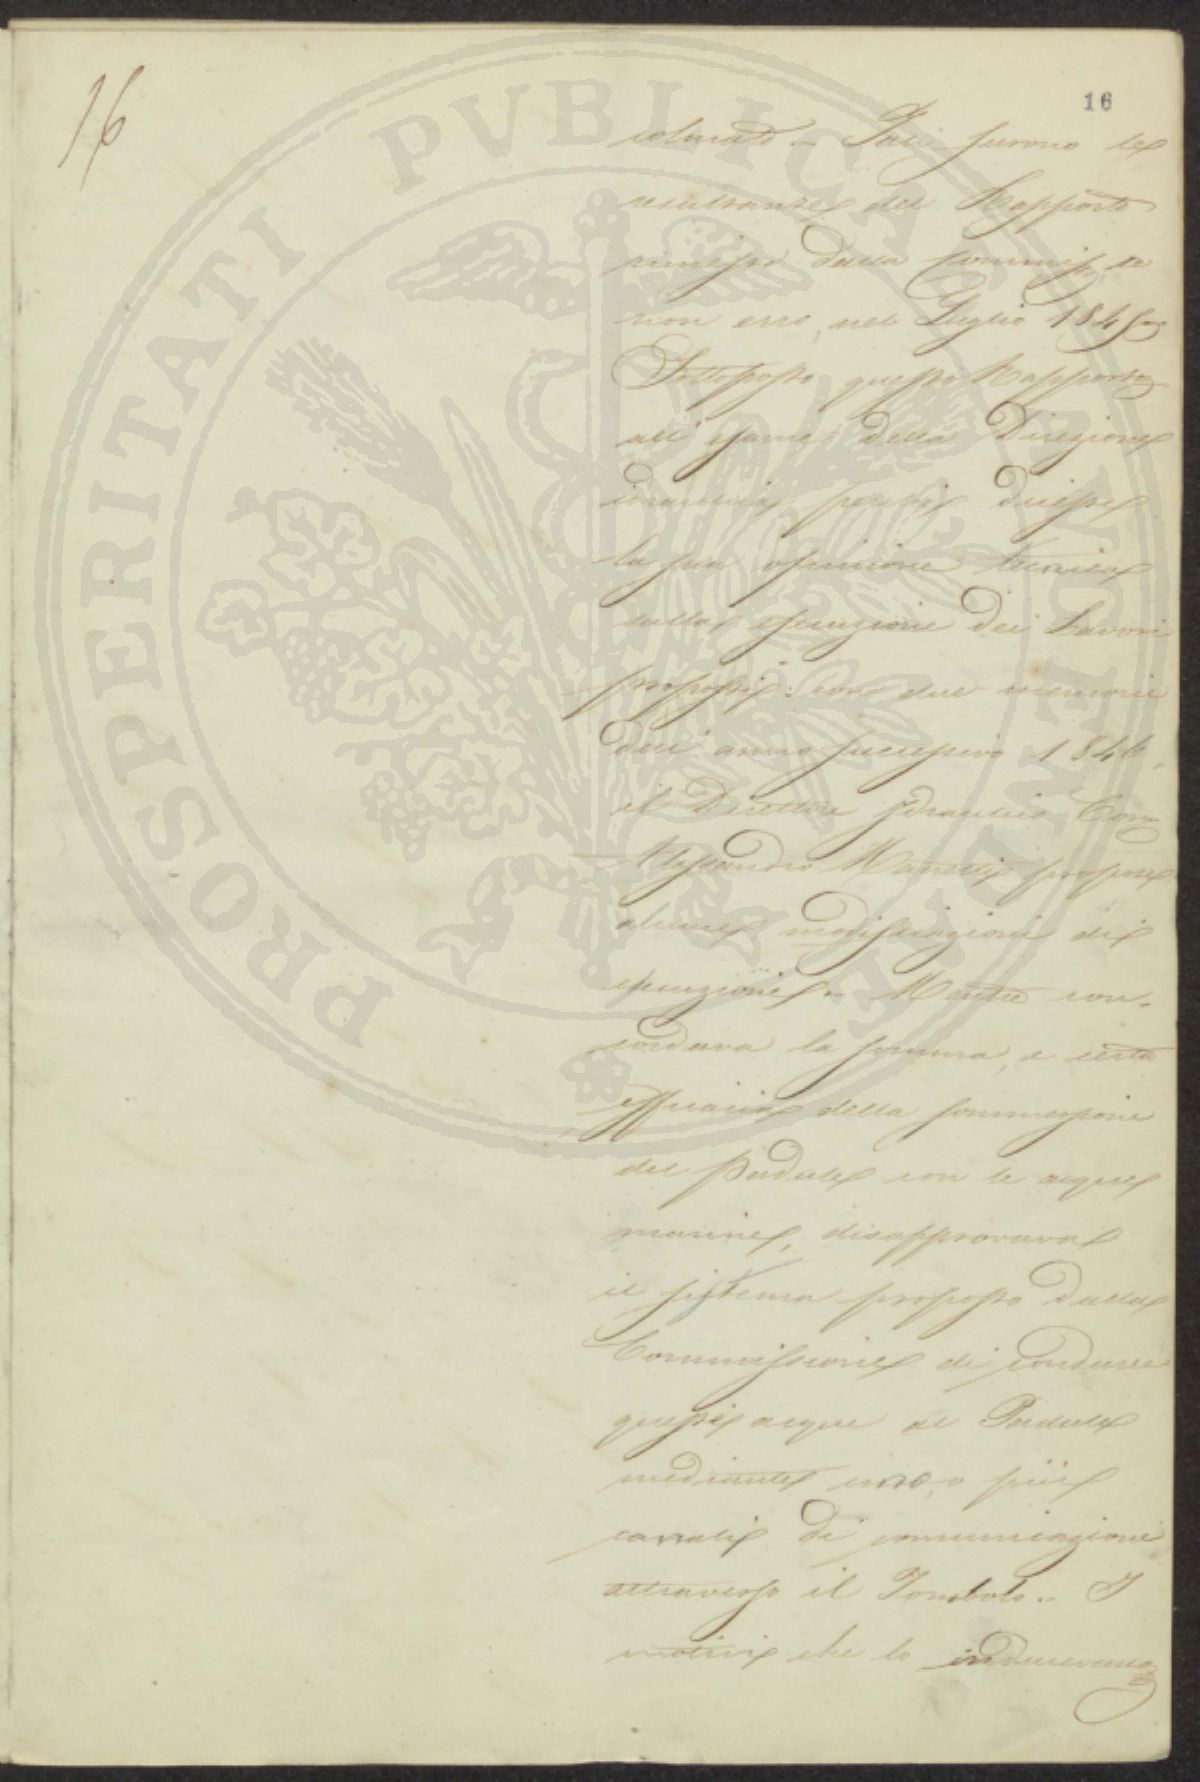 16
16
colmato. – Tali furono le
resultanze del Rapporto
rimesso dalla Commisse. se
non erro, nel Luglio 1845.
Sottoposto questo Rapporto
all' esame della Direzione
idraulica perché dicesse
la sua opinione tecnica
sulla esecuzione dei Lavori
proposti: con due memorie
dell' anno successivo 1846.
il Direttore Idraulico Com.
Alessandro Manetti propose
alcune modificazioni di
esecuzione. – Mentre con-
cordava la somma, e certa
efficacia della sommersione
del Padule con le acque
marine, disapprovava
il sistema proposto dalla
Commissione di condurre
queste acque al Padule
mediante uno, o più
canali di comunicazione
attraverso il Tombolo. – I
motivi che lo inducevano
PROSPERITATI PVBLICAE AVGENDAE